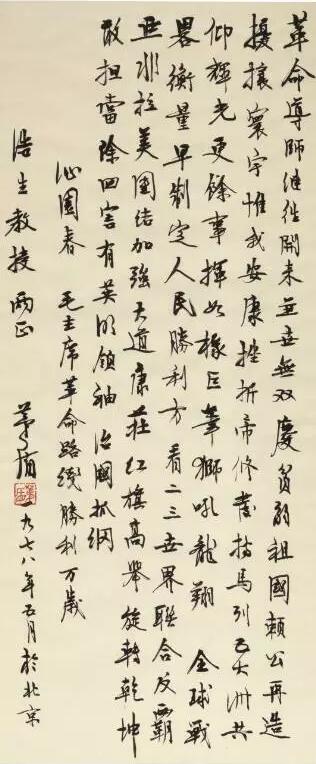 革命導師继往開来並世無双慶貧弱祖國賴公再造
擾攘寰宇惟我安康挫折帝修發揚馬列五大洲共
仰輝光更餘事揮如椽巨筆獅吼龍翔 全球戰
畧衡量早制定人民勝利方看二三世界联合反霸
亞非拉美團结加強大道康莊红旗高舉旋轉乾坤
敢担當除四害有英明領袖治國抓纲
沁園春 毛主席革命路线勝利万歲
浩生教授两正
茅盾 一九七八年五月於北京